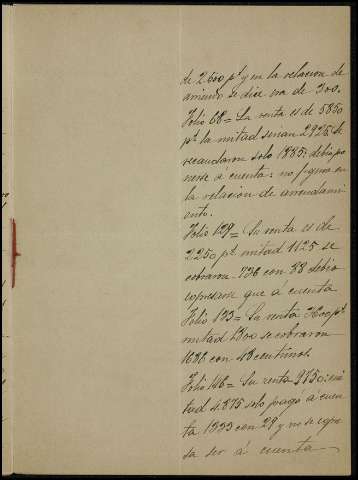 de 2600 pt y en la relacion de
arriendo se dice era de 300.
Folio 68 = La renta es de 5850
pt la mitad serian 2925: se
recaudaron solo 1885: debio po
nerse á cuenta: no figura en
la relacion de arrendami
ento.
Folio 129 = Su renta es de
2250 pt mitad 1125 se
cobraron 736 con 88 debio
expresarse que á cuenta
Folio 133 = Su renta
mitad 1800 se cobraron
1686 con 48 centimos.
Folio 146 = Su renta 9750: mi
tad 4.875 solo pagó á cuen
ta 1333 con 29 y no se expre
sa ser á cuenta